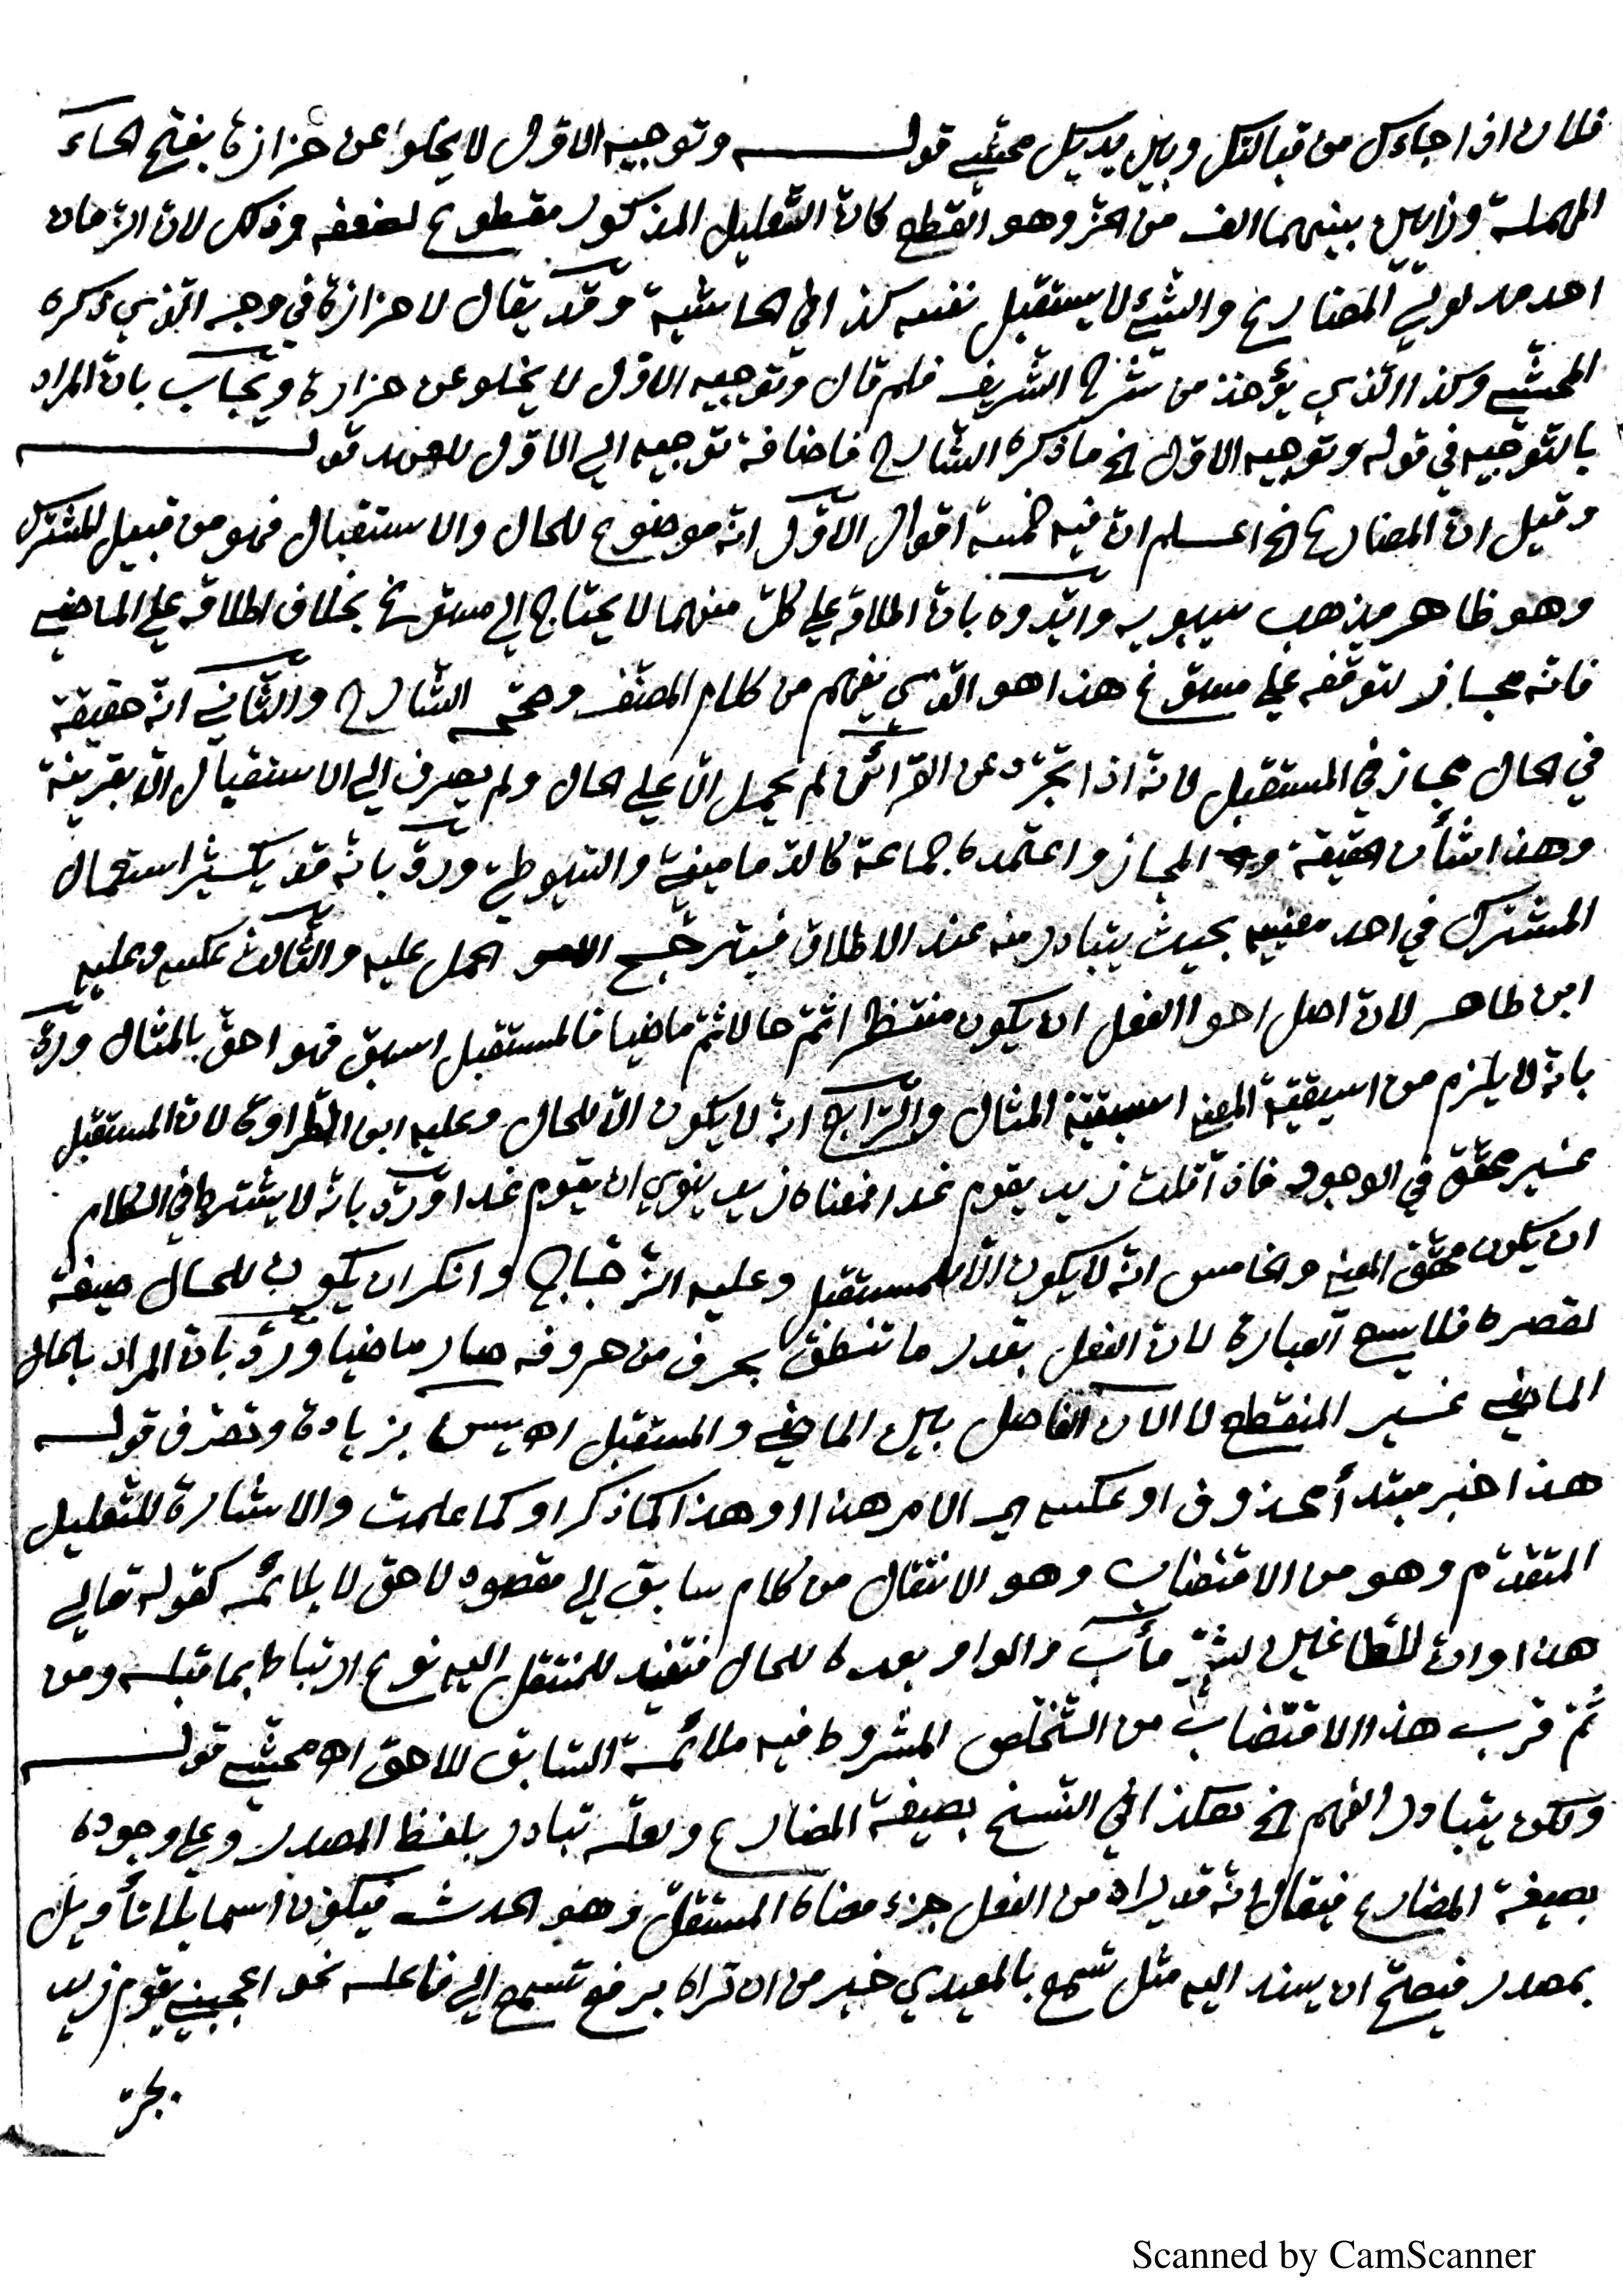 فلان اذا جاءك من قبالتك وبين يديك محشي قوله وتوجيه الاول لا يخلوا عن حزازة بفتح الحاء
المهملة وزايين بينهما الف من الحز وهو القطع كان التعليل المذكور مقطوع لضعفه وذلك لان الزمان
احد مدلولي المضارع والشئ لا يستقبل نفسه كذا في الحاشية وقد يقال لا حزازة في وجه الذي ذكره
المحشي وكذا الذي يؤخذ من شرح الشريف فلم قال وتوجيه الاول لا يخلو عن حزازة ويجاب بان المراد
بالتوجيه في قوله وتوجيه الاول الخ ما ذكره الشارح فاضافة توجيه الي الاول للعهد قوله
وقيل ان المضارع الخ اعلم ان فيه خمسة اقوال الاول انه موضوع للحال والاستقبال فهو من قبيل المشترك
وهو ظاهر مذهب سيبويه وايدوه بان اطلاقه علي كل منهما لا يحتاج الي مسوغ بخلاف اطلاقه علي الماضي
فانه مجاز لتوقفه علي مسوغ هذا هو الذي يفهم من كلام المصنف وصححه الشارح والثاني انه حقيقة
في الحال مجاز في المستقبل لانه اذا تجرد عن القرائن لم يحمل الا علي الحال ولم يصرف الي الاستقبال الا بقرينة
وهذا شأن الحقيقة والمجاز واعتمده جماعة كالدماميني والسيوطي ورد بانه قد يكثير استعمال
المشترك في احد معنييه بحيث يتبادر منه عند الاطلاق فيترجح الحمل عليه والثالث عكسه وعليه
ابن طاهر لان اصل احوا الفعل ان يكون منتظرا ثم حالا ثم ماضيا فالمستقبل اسبق فهو احق بالمثال ورد
بانه لا يلزم من اسبقية المعني اسبقية المثال والرابع انه لا يكون الا للحال وعليه ابن الطراوة لان المستقبل
غير محقق في الوجود فاذا قلت زيد يقوم غدا فمعناه زيد ينوي ان يقوم غدا ورد بانه لا يشترط في الكلام
ان يكون محقق المعني والخامس انه لا يكون الا للمستقبل وعليه الزجاج وانكر ان يكون للحال صيغة
لقصره فلا يسع العبارة لان الفعل بقدر ما تنطق بحرف من حروفه صار ماضيا ورد بان المراد بالحال
الماضي غير المنقطع لا الآن الفاصل بين الماضي والمستقبل اه يس بزيادة وتصرف قوله
هذا خبر مبتدأ محذوف او عكسه اي الامر هذا او هذا كما ذكر او كما علمت والاشارة للتعليل
المتقدم وهو من الاقتضاب وهو الانتقال من كلام سابق الي مقصود لاحق لا يلائمه كقوله تعالي
هذا وان للطاغين لشر مأب والواو بعده للحال فتفيد للمنتقل اليه نوع ارتباط بما قبله ومن
ثم قرب هذا الاقتضاب من التخلص المشروط فيه ملائمة السابق للاحق اه محشي قوله
ولكن يتبادر الفهم الخ هكذا في النسخ بصيغة المضارع ولعله تبادر بلفظ المصدر وعلي وجوده
بصيغة المضارع فيقال انه قد يراد من الفعل جزء معناه المستقل وهو الحدث فيكون اسما بلا تأويل
بمصدر فيصح ان يسند اليه مثل تسمع بالمعيدي خير من ان تراه برفع تسمع الي فاعله نحو اعجبني يقوم زيد
بحر
Scanned by CamScanner